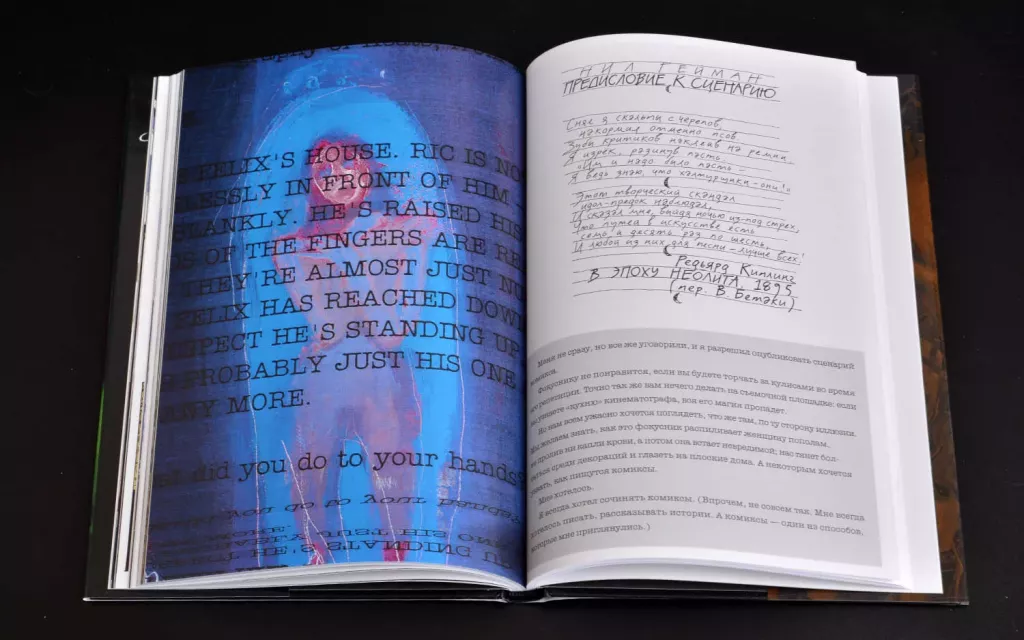 FELIX'S HOUSE. RIC IS NO
IN FRONT OF HIM
HE'S RAISED HIS
OF THE FINGERS ARE RE
THEY'RE ALMOST JUST NU
FELIX HAS REACHED DOWN
HE'S STANDING UP
PROBABLY JUST HIS ONE
ANY MORE.
did you do to your hands?
НИЛ ГЕЙМАН
ПРЕДИСЛОВИЕ К СЦЕНАРИЮ
Снял я скальпы с черепов,
накормил отменно псов
Зубы критиков наклеив на ремни
Я изрёк, разинув пасть
"Им и надо было пасть –
Я ведь знаю, что халтурщики – они!"
Этот творческий скандал
Идол-предок наблюдал,
И сказал мне, выйдя ночью из-под стрех,
Что путей в искусстве есть
семь и десять раз по шесть,
И любой из них для песни – лучше всех!
Редьярд Киплинг
В ЭПОХУ НЕОЛИТА, 1895
(пер. В. Бетаки)
Меня не сразу, но все же уговорили, и я разрешил опубликовать сценарий
комикса.
Фокуснику не понравится, если вы будете торчать за кулисами во время
его репетиции. Точно так же нам нечего делать на съемочной площадке: если
вы узнаете «кухню» кинематографа, вся его магия пропадет.
Но нам всем ужасно хочется поглядеть, что же там, по ту сторону иллюзии.
Мы желаем знать, как это фокусник распиливает женщину пополам,
не пролив ни капли крови, а потом она встает невредимой; нас тянет бол-
таться среди декораций и глазеть на плоские дома. А некоторым хочется
узнать, как пишутся комиксы.
Мне хотелось.
Я всегда хотел сочинять комиксы. (Впрочем, не совсем так. Мне всегда
хотелось писать, рассказывать истории. А комиксы – один из способов,
которые мне приглянулись.)